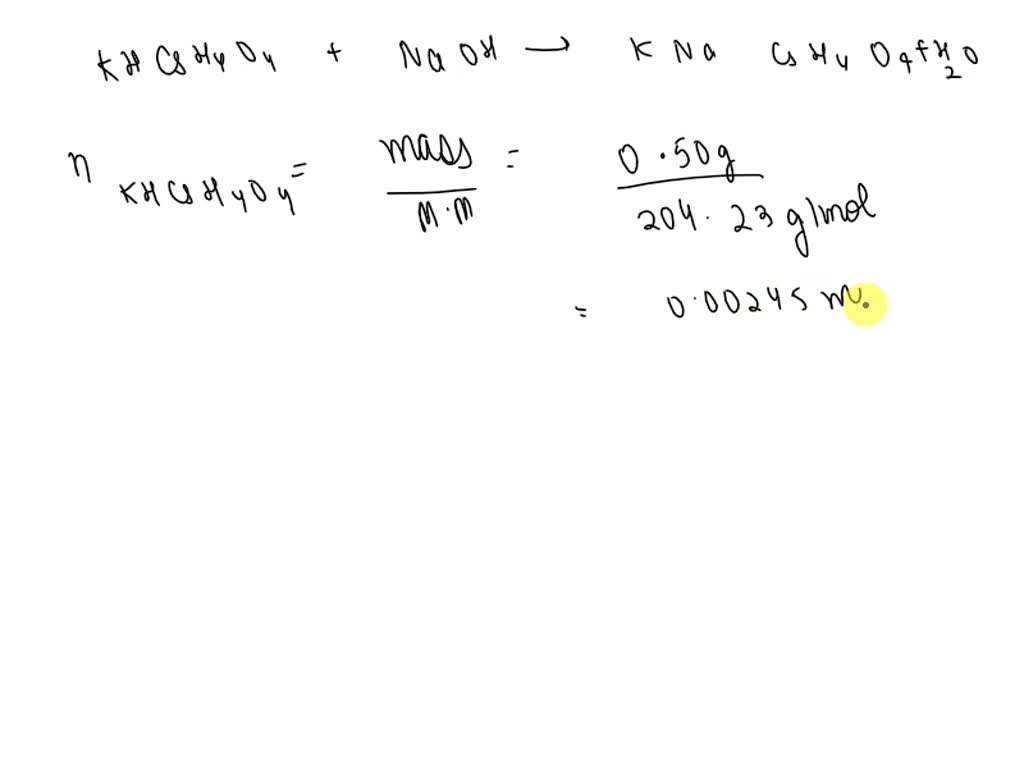 KHC8H4O4 + NaOH → KNa C8H4O4 + H2O
n KHC8H4O4 = mass / M.M = 0.50g / 204.23 g/mol
= 0.00245 m